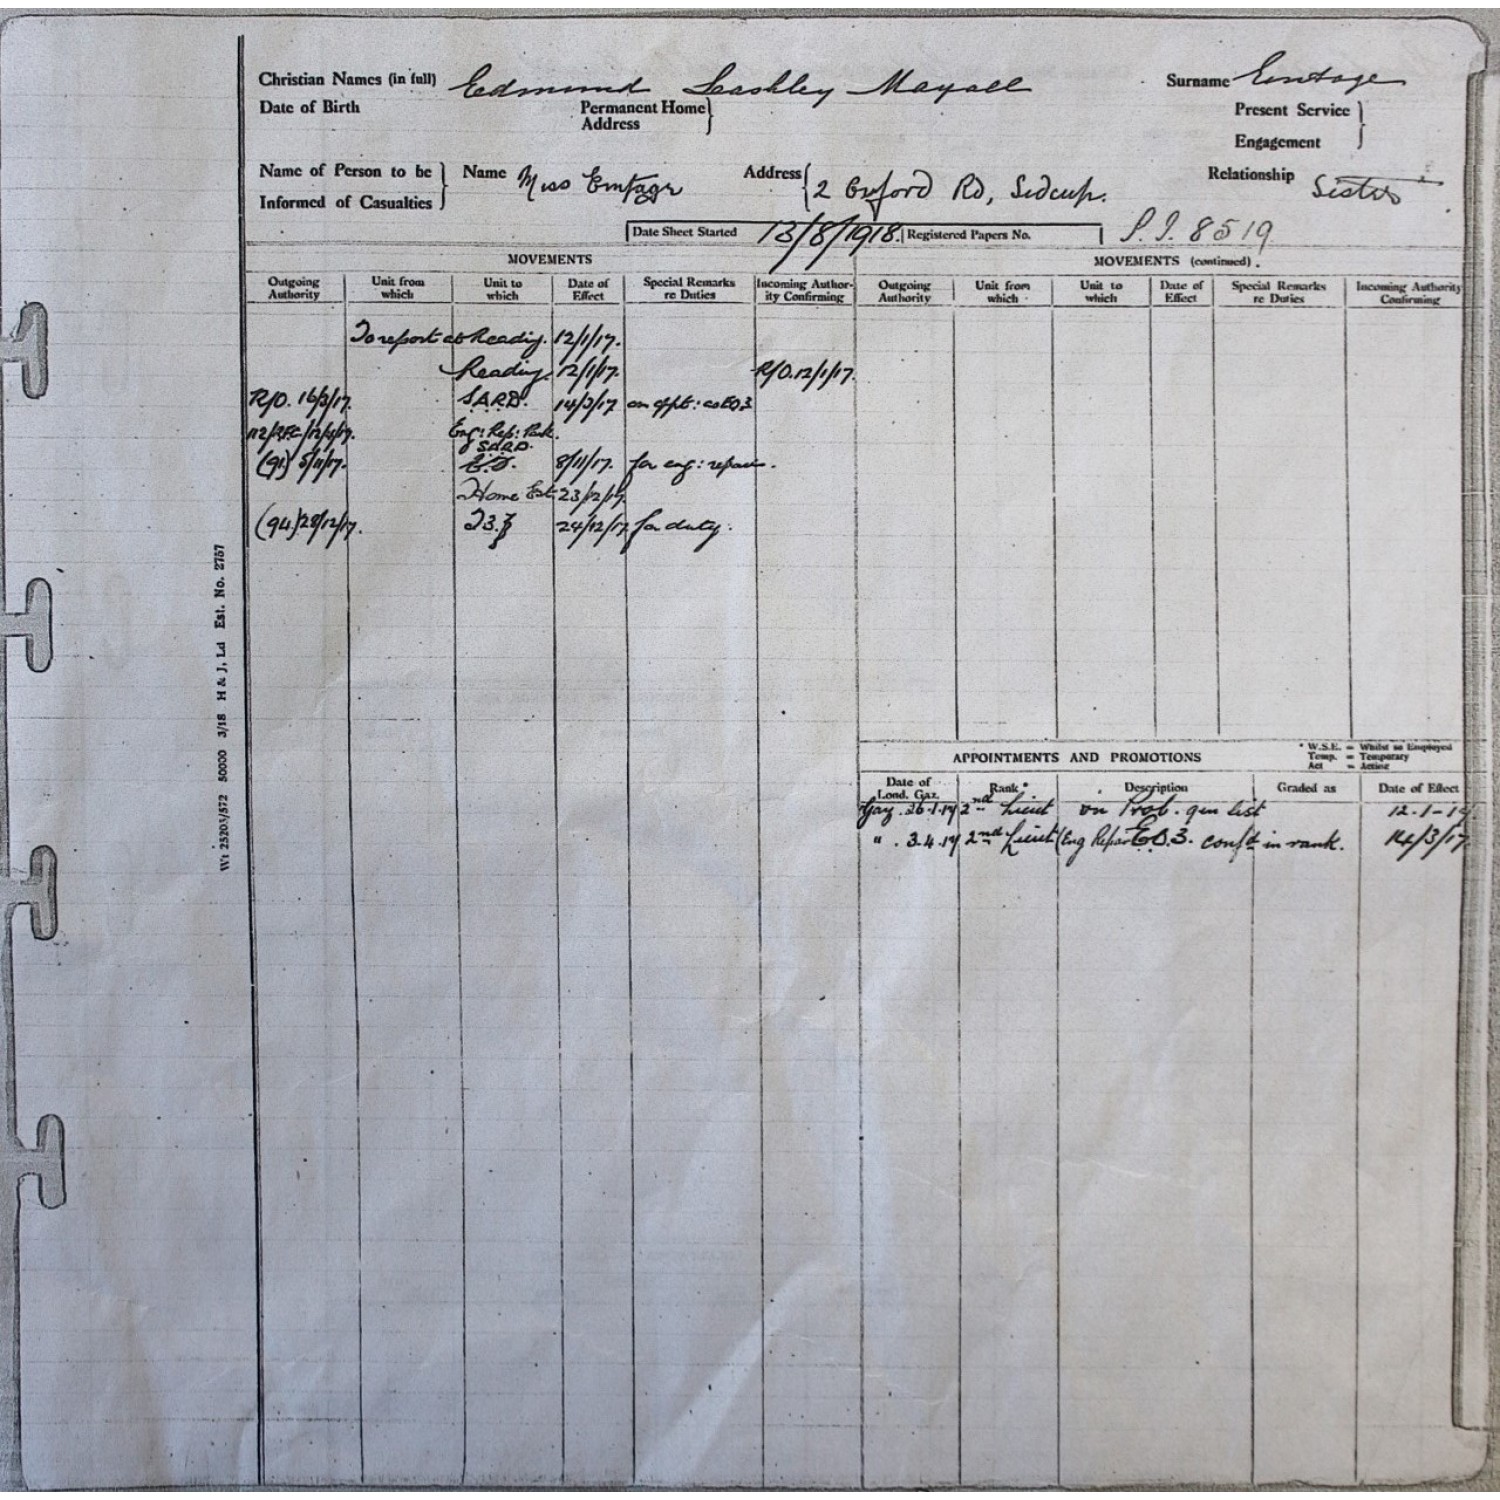 Christian Names (in full) Edmund Leashley Mayall Surname Emtage
Date of Birth Permanent Home Address Present Service
Engagement
Name of Person to be Informed of Casualties Name Miss Emtage Address 2 Oxford Rd, Sidcup. Relationship Sister
Date Sheet Started 13/8/1918. Registered Papers No. P.I. 8519
MOVEMENTS
Outgoing Authority Unit from which Unit to which Date of Effect Special Remarks re Duties Incoming Authority Confirming
To report at Reading. 12/1/17.
Reading. 12/1/17. R/O. 12/1/17.
R/O. 16/3/17. S.A.R.D. 14/3/17 on appt: as EO3
112/RFC/12/4/17. Eng: Rep: Park.
S.A.R.D.
(91) 5/11/17. 8/11/17. for eng: repair.
Home Est. 23/12/17.
(94) 28/12/17. 24/12/17 for duty.
MOVEMENTS (continued).
Outgoing Authority Unit from which Unit to which Date of Effect Special Remarks re Duties Incoming Authority Confirming
APPOINTMENTS AND PROMOTIONS
* W.S.E. = Whilst so Employed
Temp. = Temporary
Act = Acting
Date of Lond. Gaz. Rank* Description Graded as Date of Effect
Gaz. 26.1.17 2nd Lieut on Prob. gen list 12-1-17
" . 3.4.17 2nd Lieut (Eng Repair E.O.3. conf'd in rank. 14/3/17
Wt 25203/572 50000 3/18 H & J, Ld Est. No. 2757